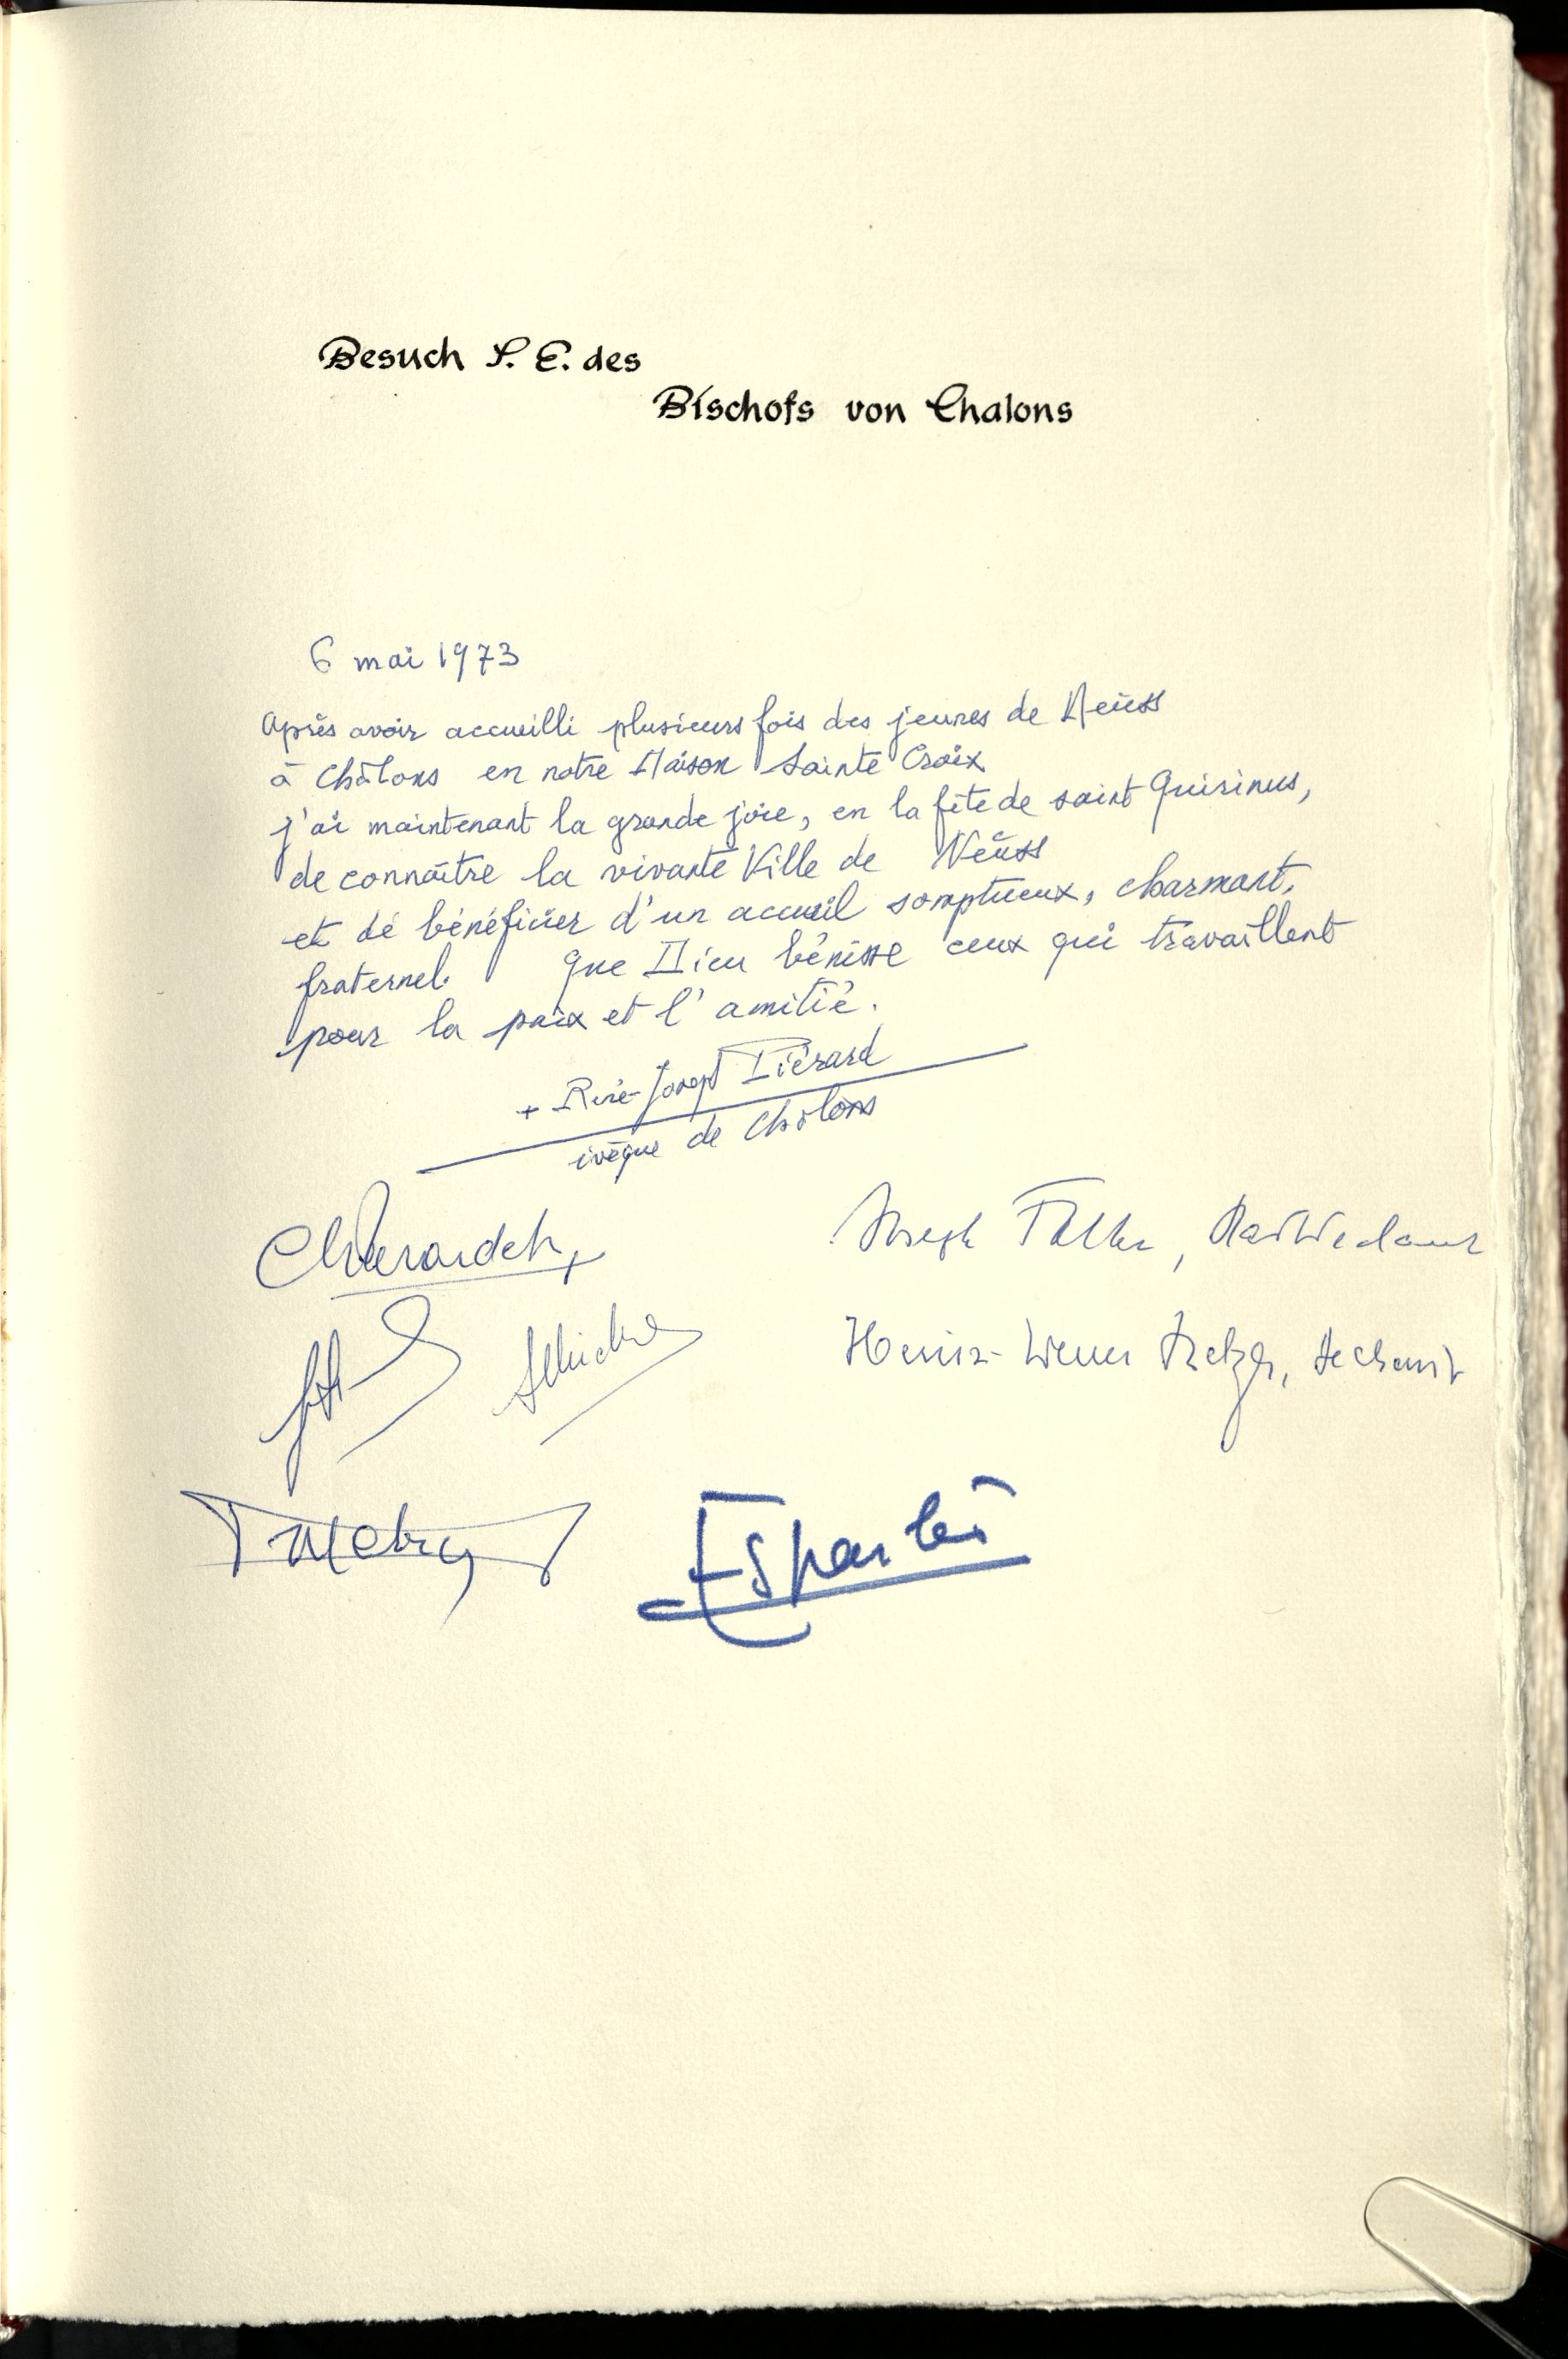 Besuch S. E. des
Bischofs von Chalons
6 mai 1973
Après avoir accueilli plusieurs fois des jeunes de Neüss
à Châlons en notre Maison Sainte Croix
j'ai maintenant la grande joie, en la fête de saint Quirinus,
de connaître la vivante Ville de Neüss
et de bénéficier d'un accueil somptueux, charmant,
fraternel. Que Dieu bénisse ceux qui travaillent
pour la paix et l'amitié.
+ René-Joseph Piérard
évêque de Châlons
Joseph
Heinz-Werner, Dechant